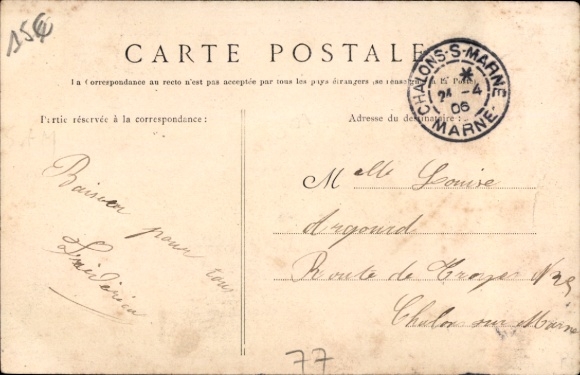 15€
CARTE POSTALE
La Correspondance au recto n'est pas acceptée par tous les pays étrangers (se renseigner à la Poste)
CHALONS-S-MARNE
24 -4
06
MARNE
Partie réservée à la correspondance :
Adresse du destinataire :
Baisers pour tous
Melle Louise
Argourd
Route de Troyes N
Chalon sur Marne
77